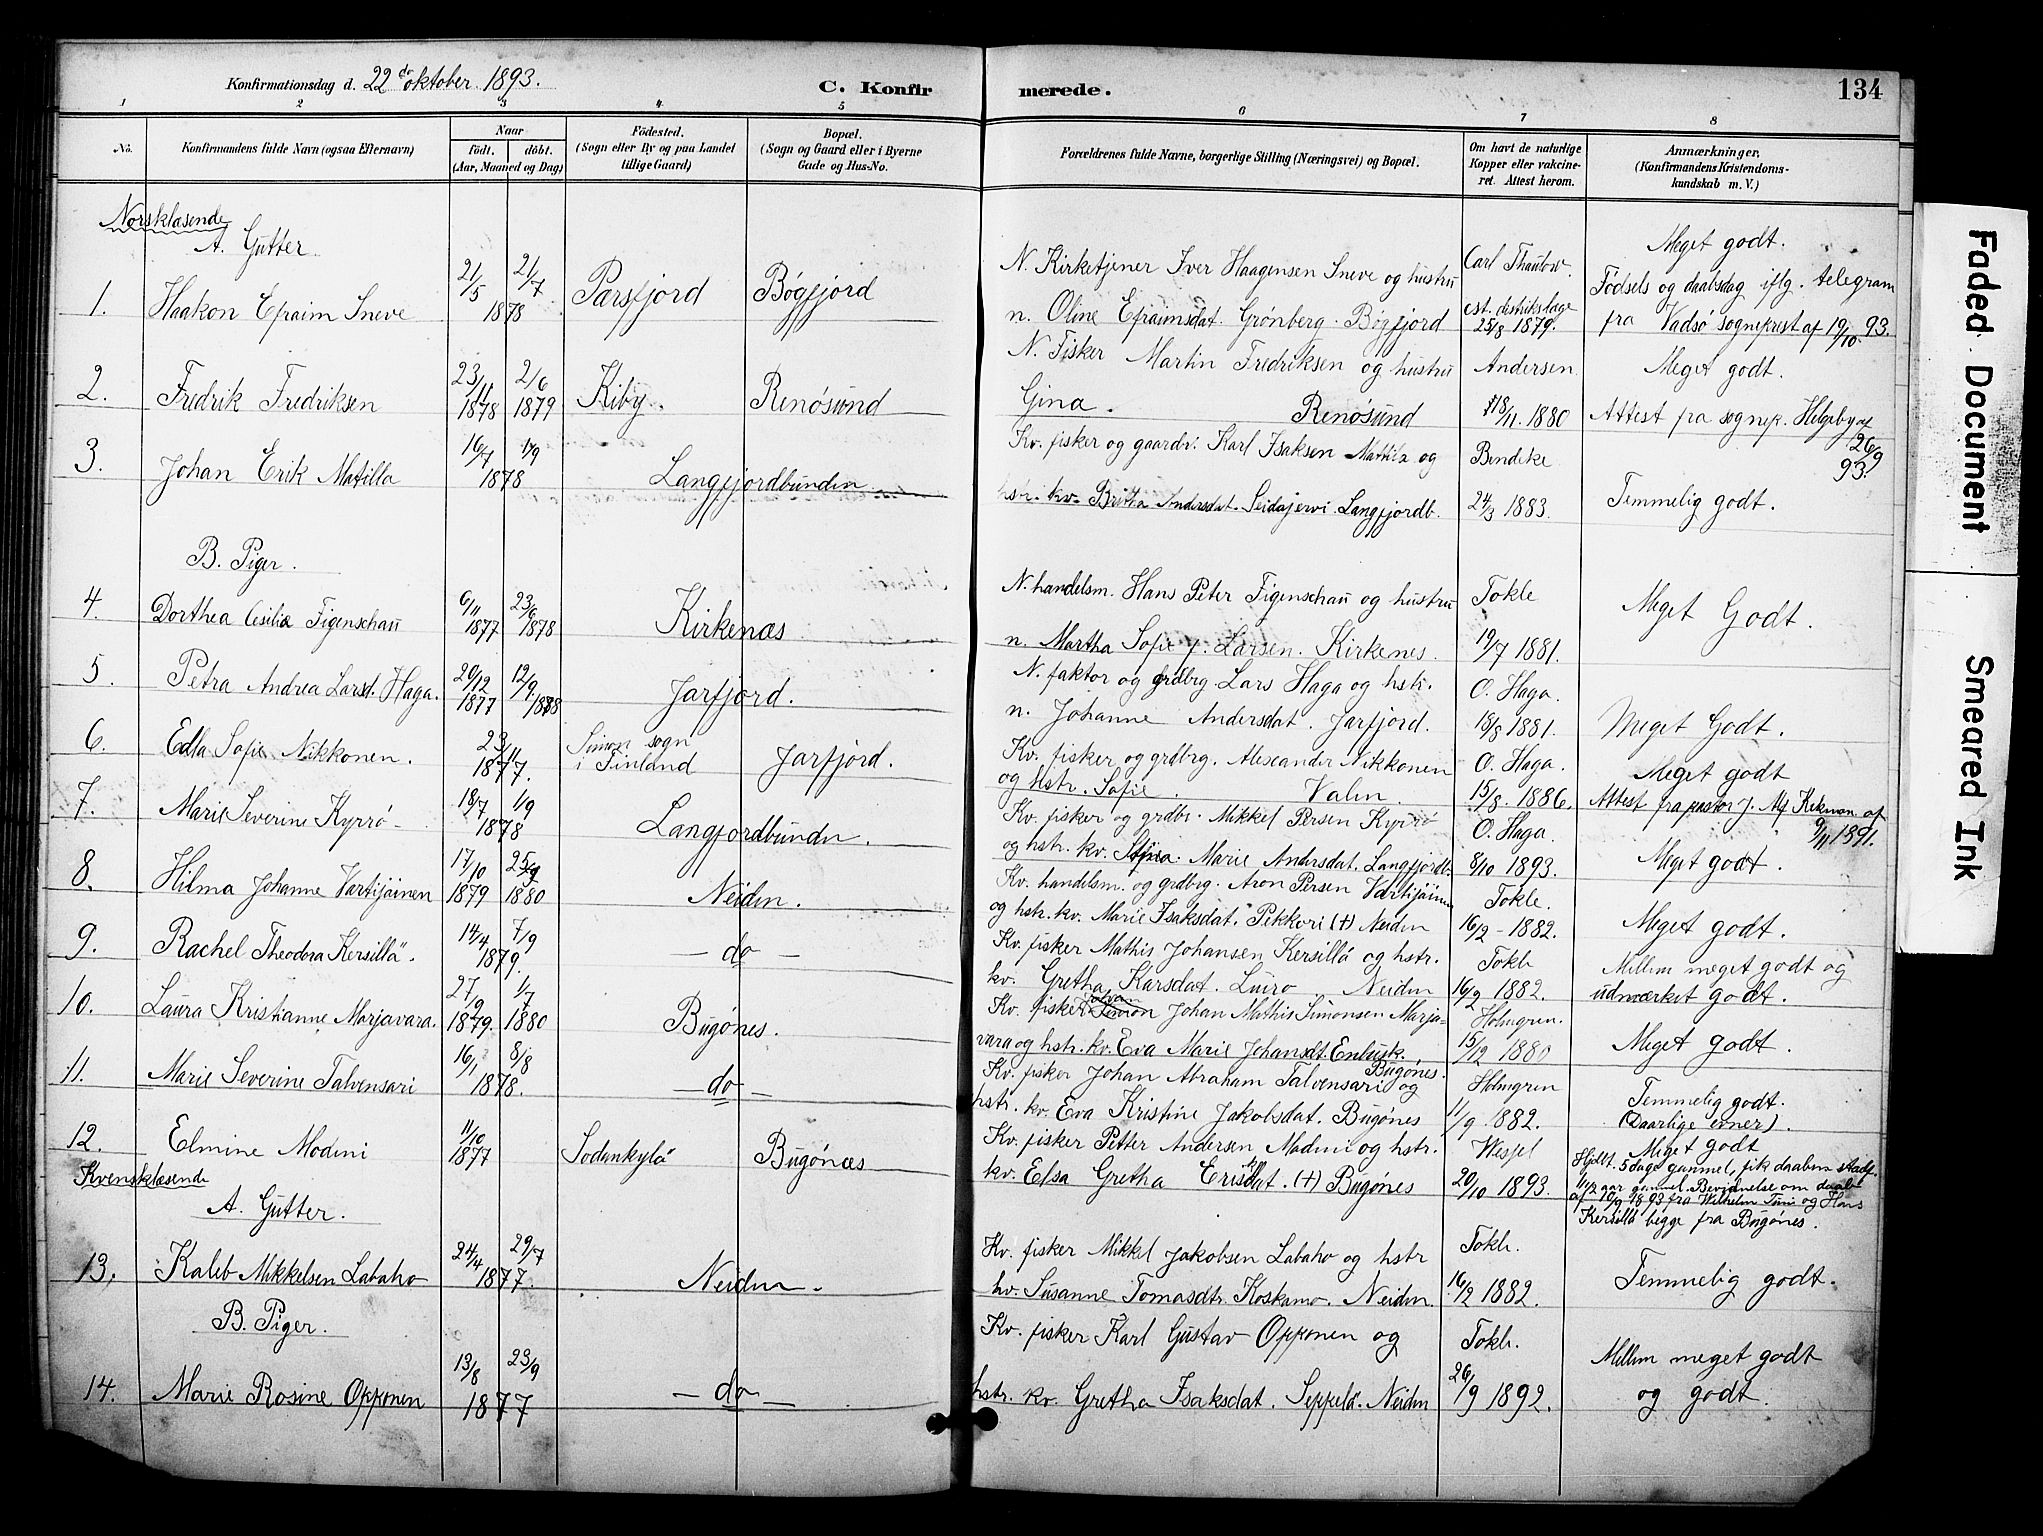 Konfirmationsdag d. 22de oktober 1893.
C. Konfirmerede.
134
1 2 3 4 5 6 7 8
No.
Konfirmandens fulde Navn (ogsaa Efternavn)
Naar
født. døbt.
(Aar, Maaned og Dag)
Fødested.
(Sogn eller By og paa Landet
tillige Gaard)
Bopæl.
(Sogn og Gaard eller i Byerne
Gade og Hus-No.
Forældrenes fulde Navne, borgerlige Stilling (Næringsvei) og Bopæl.
Om havt de naturlige
Kopper eller vakcine-
ret. Attest herom.
Anmærkninger.
(Konfirmandens Kristendoms-
kundskab m. V.)
Norsklæsende
A. Gutter
1. Haakon Efraim Sneve 21/5 21/7 1878 Parsfjord Bøgfjord
N. Kirketjener Iver Haagensen Sneve og hustru
n. Oline Efraimsdat. Grønberg. Bøgfjord
Carl Thaulow.
cst. distrikslæge
25/8 1879.
Meget godt.
Fødsels og daabsdag iflg. telegram
fra Vadsø sogneprest af 19/10 93.
2. Fredrik Fredriksen 23/11 1878 2/6 1879 Kiby. Renøsund
N. Fisker Martin Fredriksen og hustru
Gina. Renøsund
Andersen
18/11. 1880
Meget godt.
Attest fra sognep. Helgeby af
26/9
93.
3. Johan Erik Matilla 16/7 1/9 1878 Langfjordbunden
Kv. fisker og gaardbr. Karl Isaksen Mattila og
hstr. kv. Britha Andersdat. Seidajervi Langfjordb.
Bendike
24/3 1883.
Temmelig godt.
B. Piger.
4. Dorthea Cesilia Figenschau 6/11 1877 23/6 1878 Kirkenæs
N. handelsm. Hans Peter Figenschau og hustru
n. Martha Sofie f. Larsen. Kirkenes.
Tokle
19/7 1881.
Meget Godt.
5. Petra Andrea Larsd. Haga. 20/12 1877 12/9 1878 Jarfjord.
N. faktor og grdbrg. Lars Haga og hstr.
n. Johanne Andersdat. Jarfjord.
O. Haga.
18/8 1881.
Meget Godt.
6. Edla Sofie Nikkonen. 23/11 1877. Simon sogn
i Finland Jarfjord.
Kv. fisker og grdbrg. Alexander Nikkonen
og hstr. Sofie. Valin.
O. Haga.
15/8. 1886.
Meget godt
Attest fra pastor J. Alf. Kekman af
9/11 1891.
7. Marie Severine Kyrrø 18/7 1/9 1878 Langfjordbunden.
Kv. fisker og grdbr. Mikkel Persen Kyrrø
og hstr. kv. Marie Andersdat. Langfjordb.
O. Haga
8/10 1893.
Meget godt.
8. Hilma Johanne Vartijainen 17/10 1879 25/9 1880 Neiden.
Kv. handelsm. og grdbrg. Aron Persen Vartijäinen
og hstr. kv. Marie Isaksdat. Pekkori (+) Neiden
Tokle.
16/2 - 1882.
Meget godt.
9. Rachel Theodora Kersillä. 14/4 7/9 1879. - do -
Kv. fisker Mathis Johansen Kersillä og hstr.
kv. Gretha Karsdat. Luiro Neiden
Tokle
16/2 1882.
Mellem meget godt og
udmærket godt.
10. Laura Kristianne Marjavara. 27/9 1879. 1/7 1880 Bugønes.
Kv. fisker Johan Mathis Simonsen Marja-
vara og hstr. kv. Eva Marie Johansdt. Enbusk.
Bugønes.
Holmgren.
15/12 1880
Meget godt.
11. Marie Severine Talvensari 16/1 8/8 1878. - do -
Kv. fisker Johan Abraham Talvensari og
hstr. kv. Eva Kristine Jakobsdat. Bugønes
Holmgren
11/9 1882.
Temmelig godt.
(Daarlige evner).
12. Elmine Modini 11/10 1877 Sodankylä Bugønæs
Kv. fisker Petter Andersen Madini og hstr.
kv. Elsa Gretha Eriksdat. (+) Bugønes
Wessel
20/10 1893.
Meget godt
Hjdbt. 5 dage gammel, fik daaben stadf.
1 1/2 aar gammel. Bevidnelse om daab
af 10/9 1893 fra Wilhelm og Hans
Kersillä begge fra Bugønes.
Kvensklæsende
A. Gutter.
13. Kaleb Mikkelsen Labaho 24/4 29/7 1877. Neiden.
Kv. fisker Mikkel Jakobsen Labaho og hstr
kv. Susanne Tomasdtr. Koskamo. Neiden.
Tokle.
16/2 1882.
Temmelig godt.
B. Piger.
14. Marie Rosine Opponen 13/8 23/9 1877 - do -
Kv. fisker Karl Gustav Opponen og
hstr. kv. Gretha Isaksdat. Seppelä. Neiden
Tokle.
26/9 1892.
Mellem meget godt
og godt.
Faded Document
Smeared Ink